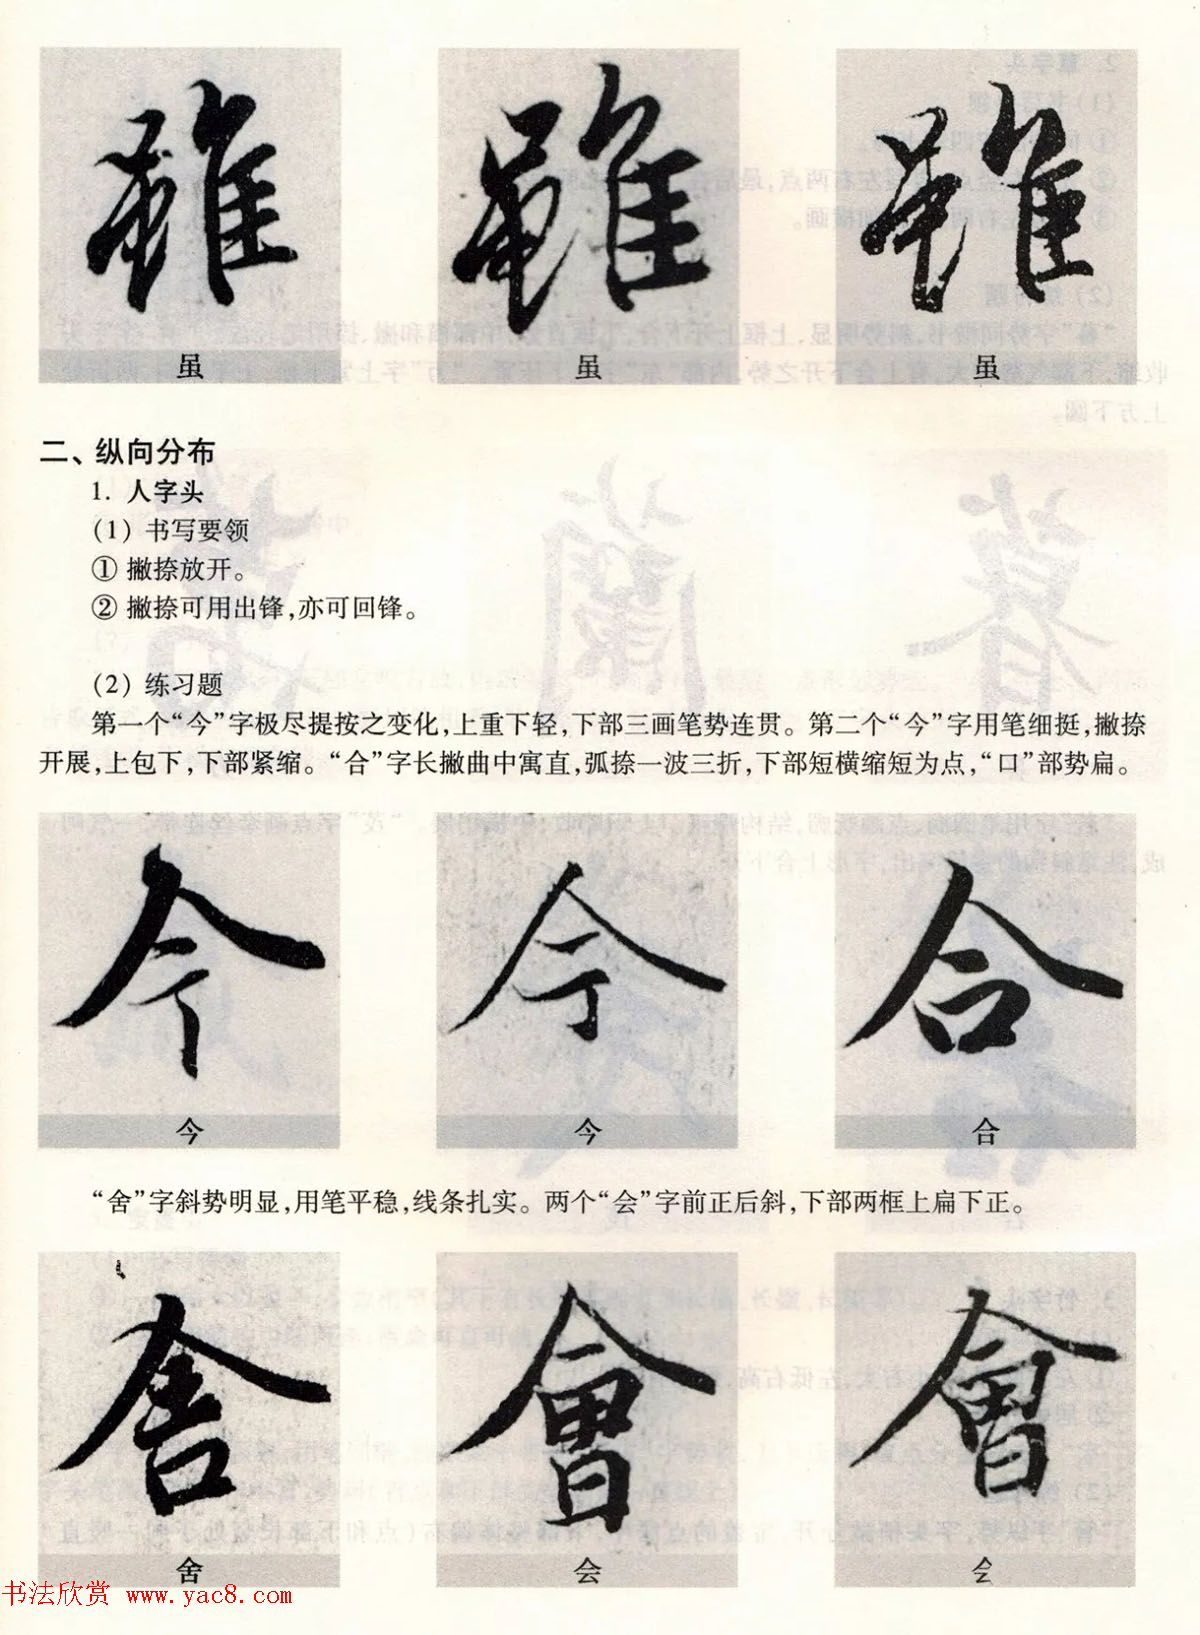 雖 雖 雖
虽 虽 虽
二、纵向分布
1. 人字头
(1) 书写要领
① 撇捺放开。
② 撇捺可用出锋,亦可回锋。
(2) 练习题
第一个“今”字极尽提按之变化,上重下轻,下部三画笔势连贯。第二个“今”字用笔细挺,撇捺
开展,上包下,下部紧缩。“合”字长撇曲中寓直,弧捺一波三折,下部短横缩短为点,“口”部势扁。
今 今 合
今 今 合
“舍”字斜势明显,用笔平稳,线条扎实。两个“会”字前正后斜,下部两框上扁下正。
舎 會 會
舍 会
书法欣赏 www.yac8.com